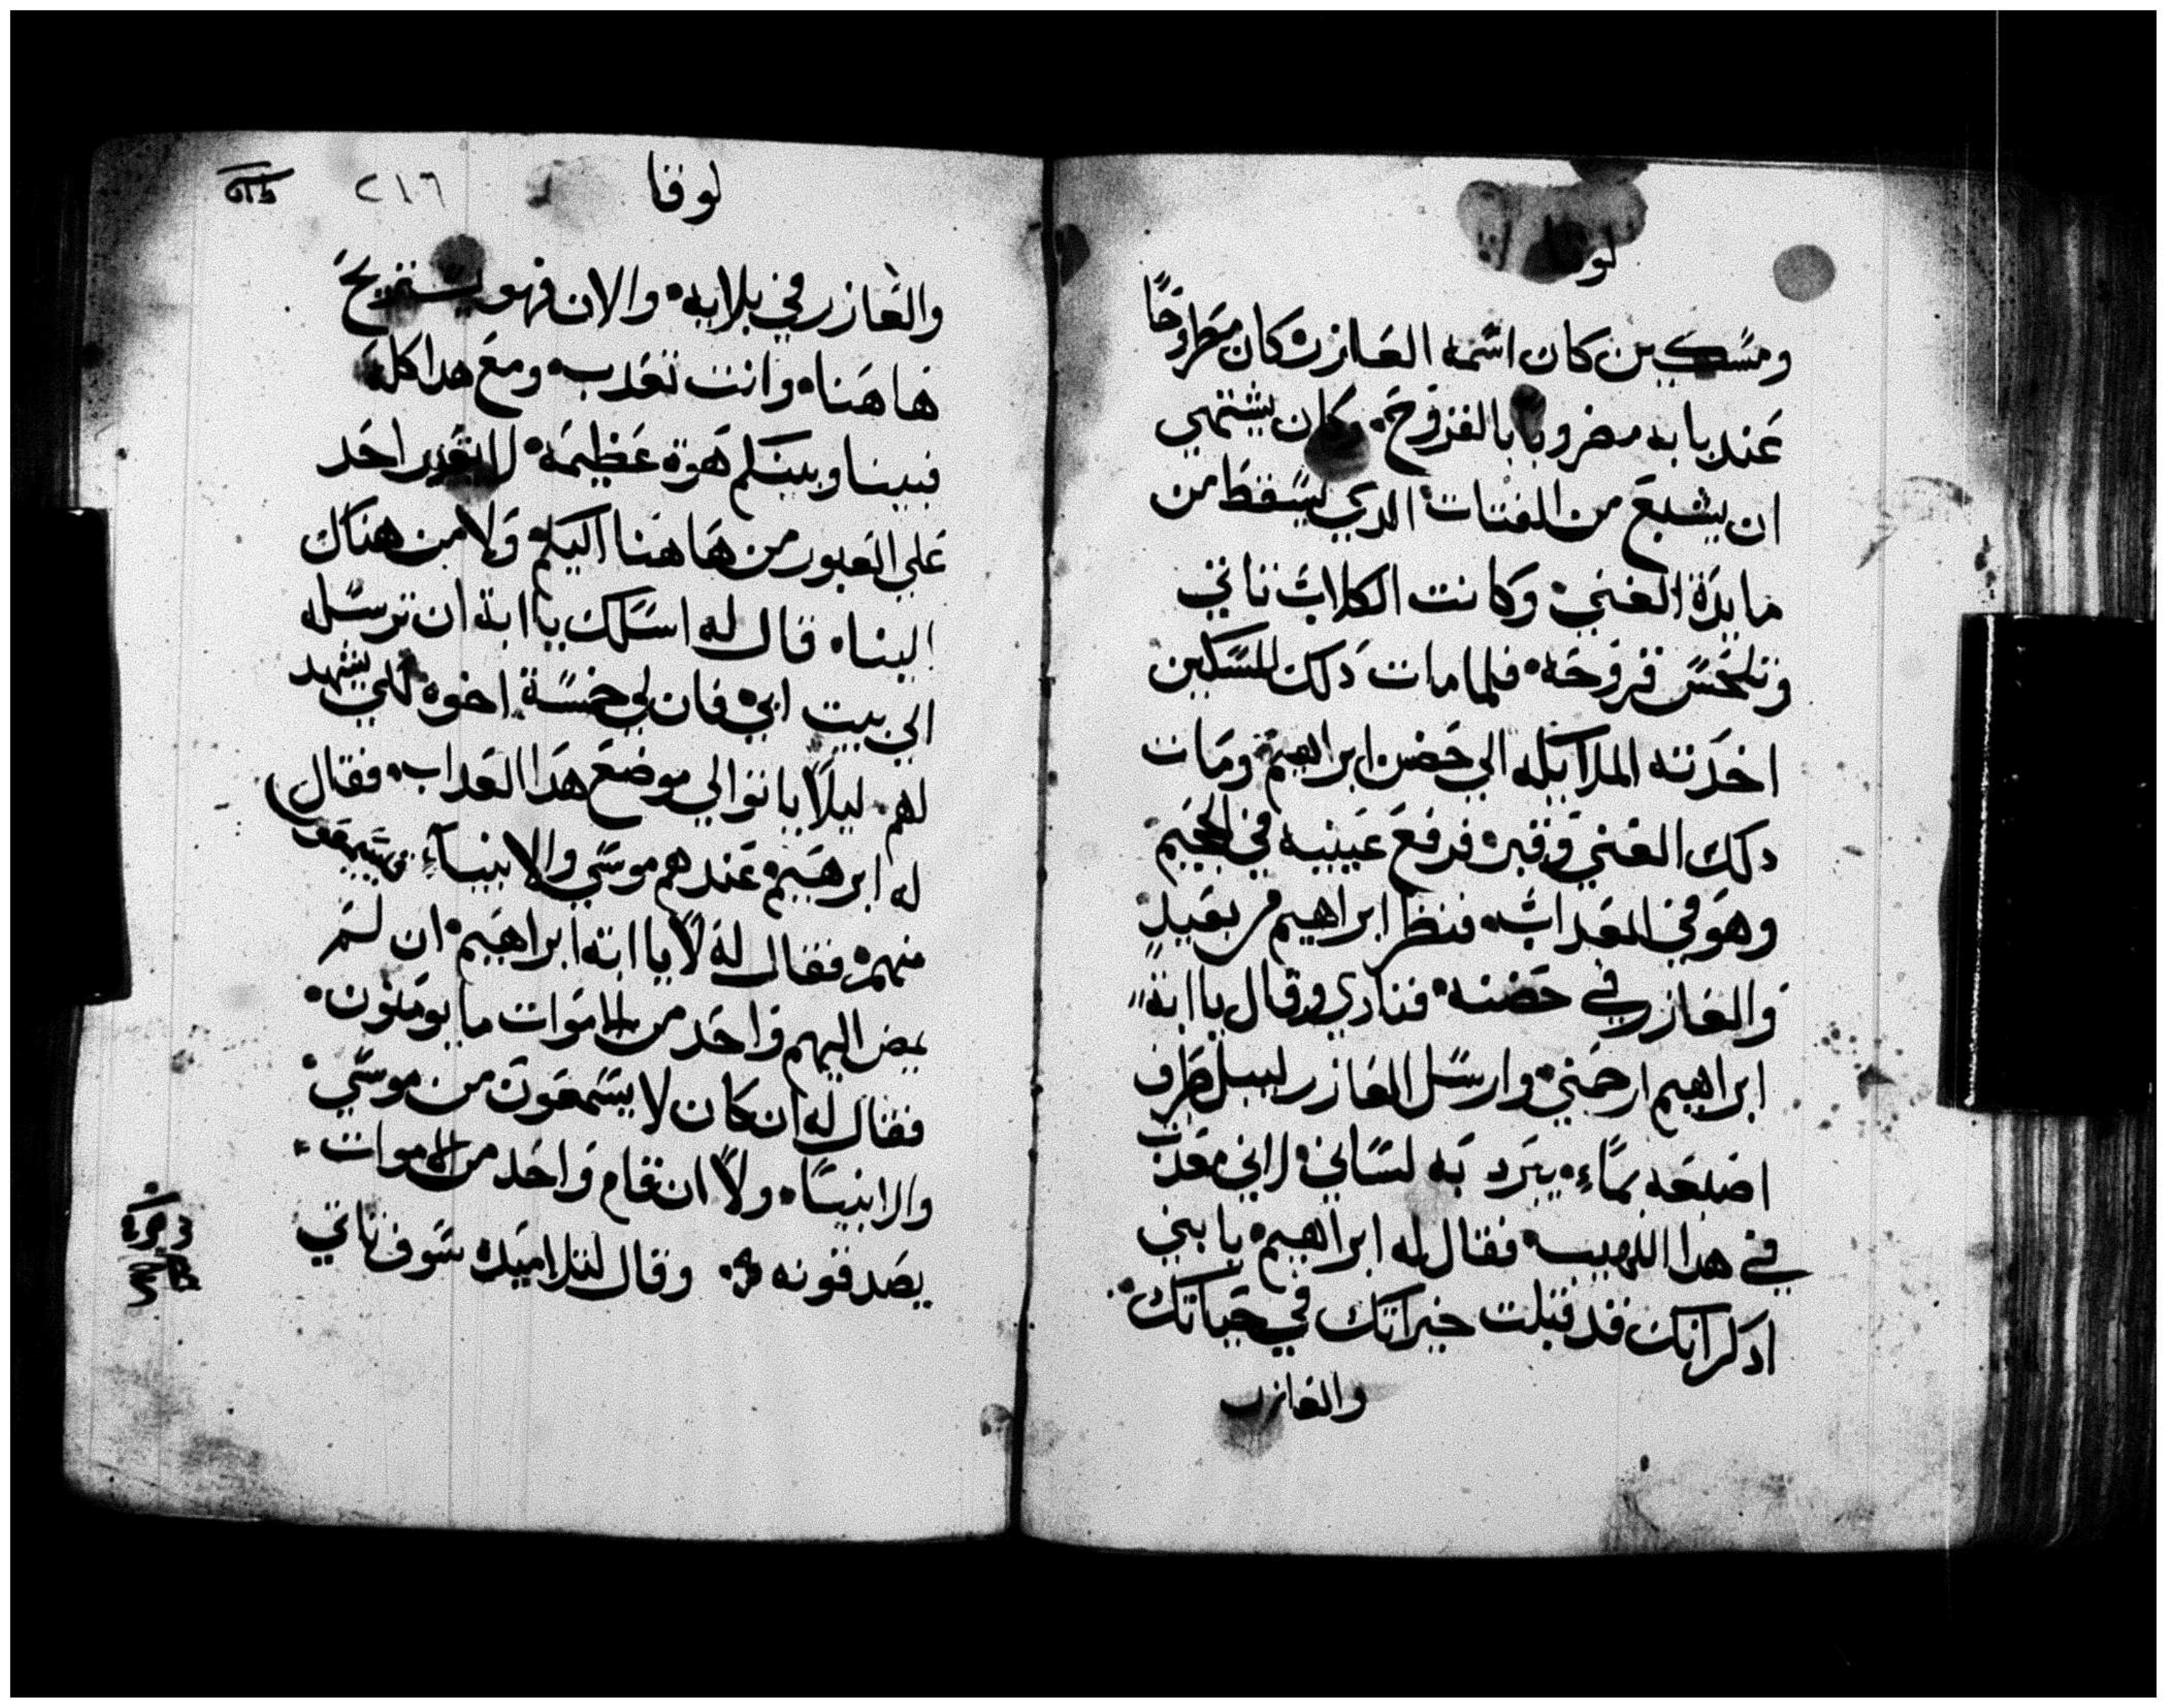 لو
ومسكين كان اسمه العازر كان مطروحًا
عند بابه مضروبا بالقروح وكان يشتهي
ان يشبع من الفتات الدي يسقط من
مايدة الغني وكانت الكلاب تاتي
وتلحس قروحه فلما مات دلك المسكين
اخدته الملايكه الي حضن ابراهيم ومات
دلك الغني وقبر فرفع عينيه في الجحيم
وهو في العداب فنظر ابراهيم من بعيد
والعازر في حضنه فنادي وقال يا ابة
ابراهيم ارحمني وارسل العازر ليبل طرف
اصبعه بماء يبرد به لساني لاني معدب
في هدا اللهيب فقال له ابراهيم يا بني
ادكر انك قد قبلت خيراتك في حياتك
والعازر
لوقا ٢١٦
والعازر في بلايه والان فهو يستريح
هاهنا وانت تعدب ومع هدا كله
فبيننا وبينكم هوة عظيمة لا يقدر احد
علي العبور من هاهنا اليكم ولا من هناك
الينا قال له اسلك يا ابة ان ترسله
الي بيت ابي فان لي خمسة اخوه لكي يشهد
لهم ليلا ياتوا الي موضع هدا العداب فقال
له ابرهيم عندهم موسي والانبياء فيسمعوا
منهم فقال له لا يا ابة ابراهيم ان لم
يمض اليهم واحد من الاموات ما يومنون
فقال له ان كان لا يسمعون من موسي
والانبيا ولا ان قام واحد من الاموات
يصدقونه وقال لتلاميده سوف تاتي